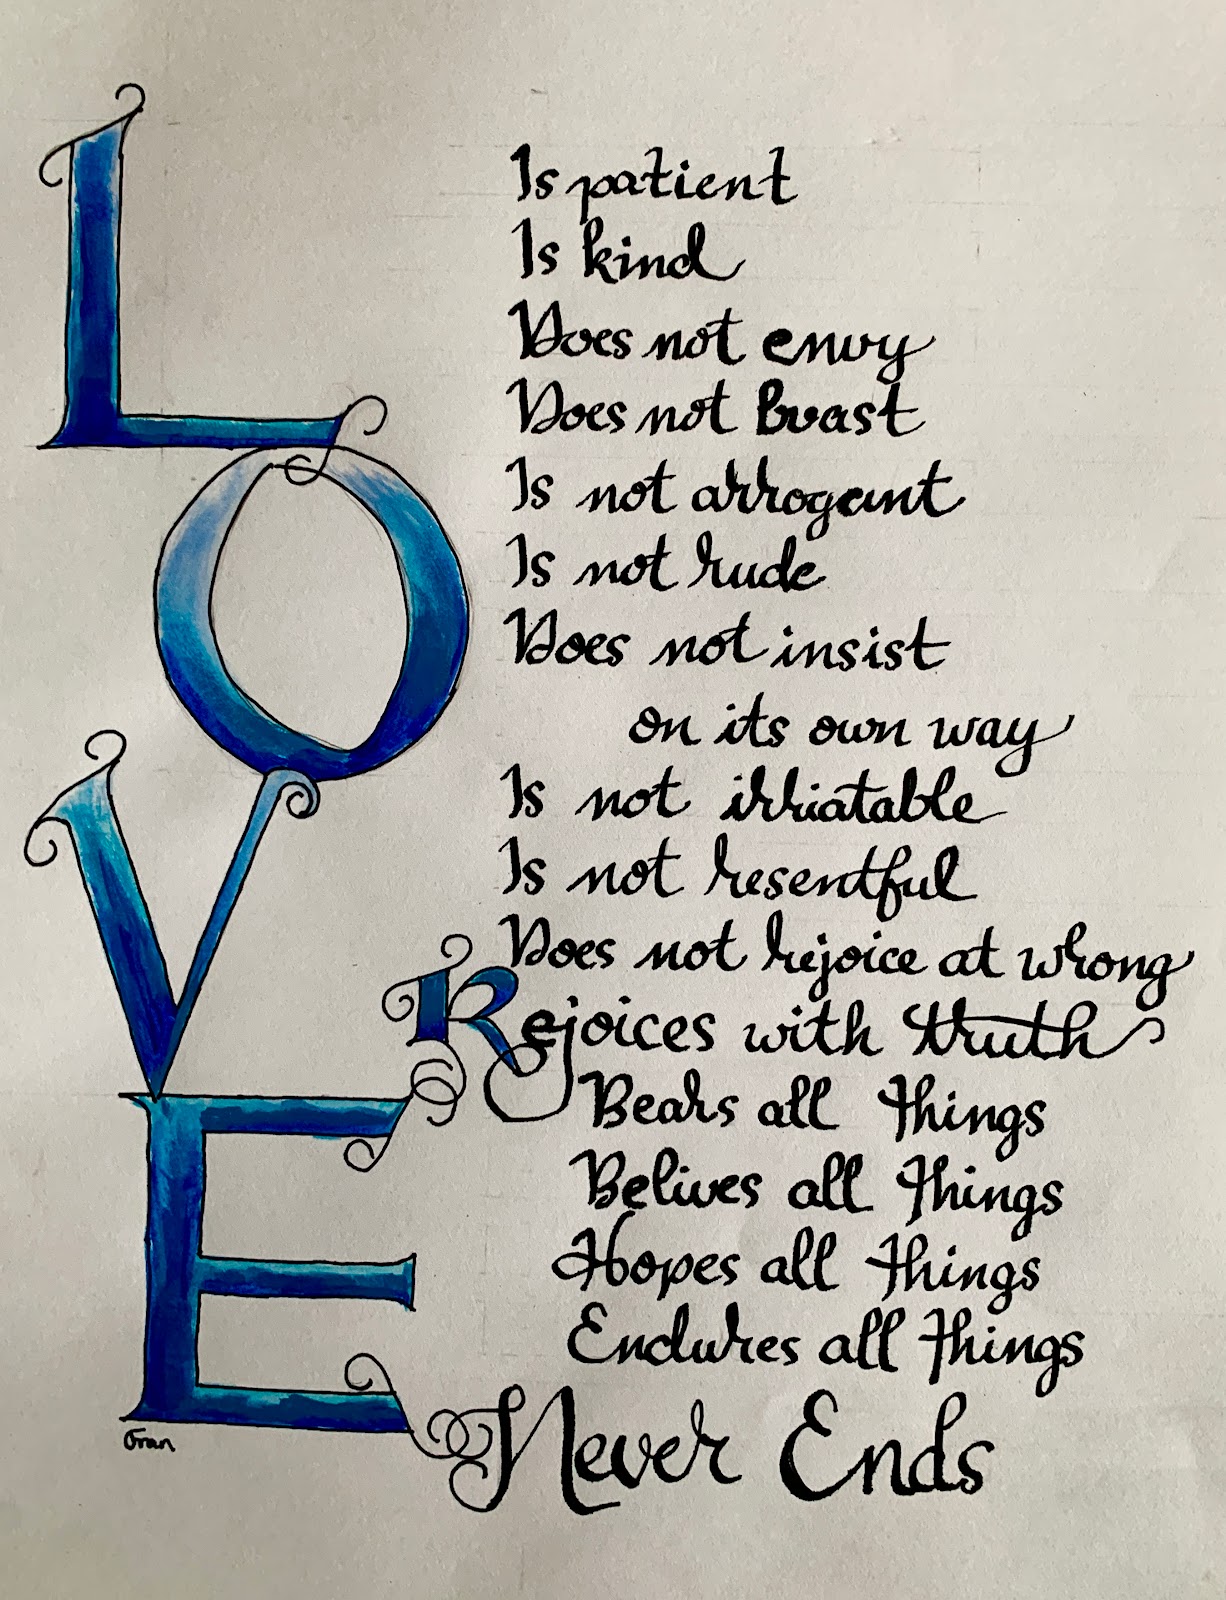 LOVE
Is patient
Is kind
Does not envy
Does not boast
Is not arrogant
Is not rude
Does not insist
on its own way
Is not irriatable
Is not resentful
Does not rejoice at wrong
Rejoices with truth
Bears all things
Belives all things
Hopes all things
Endures all things
Never Ends